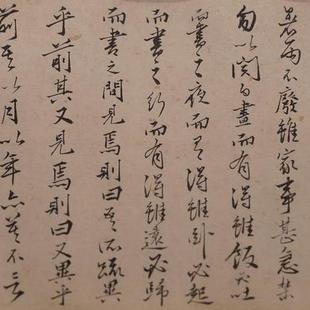 雨不廢雖家事甚急禁
勿以関白晝而有得雖飯必吐
而書之夜而有得雖卧必起
而書之行而有得雖遠必歸
而書之間見焉則曰不疏異
乎前其又見焉則曰又異乎
前以月以年亦莫不言